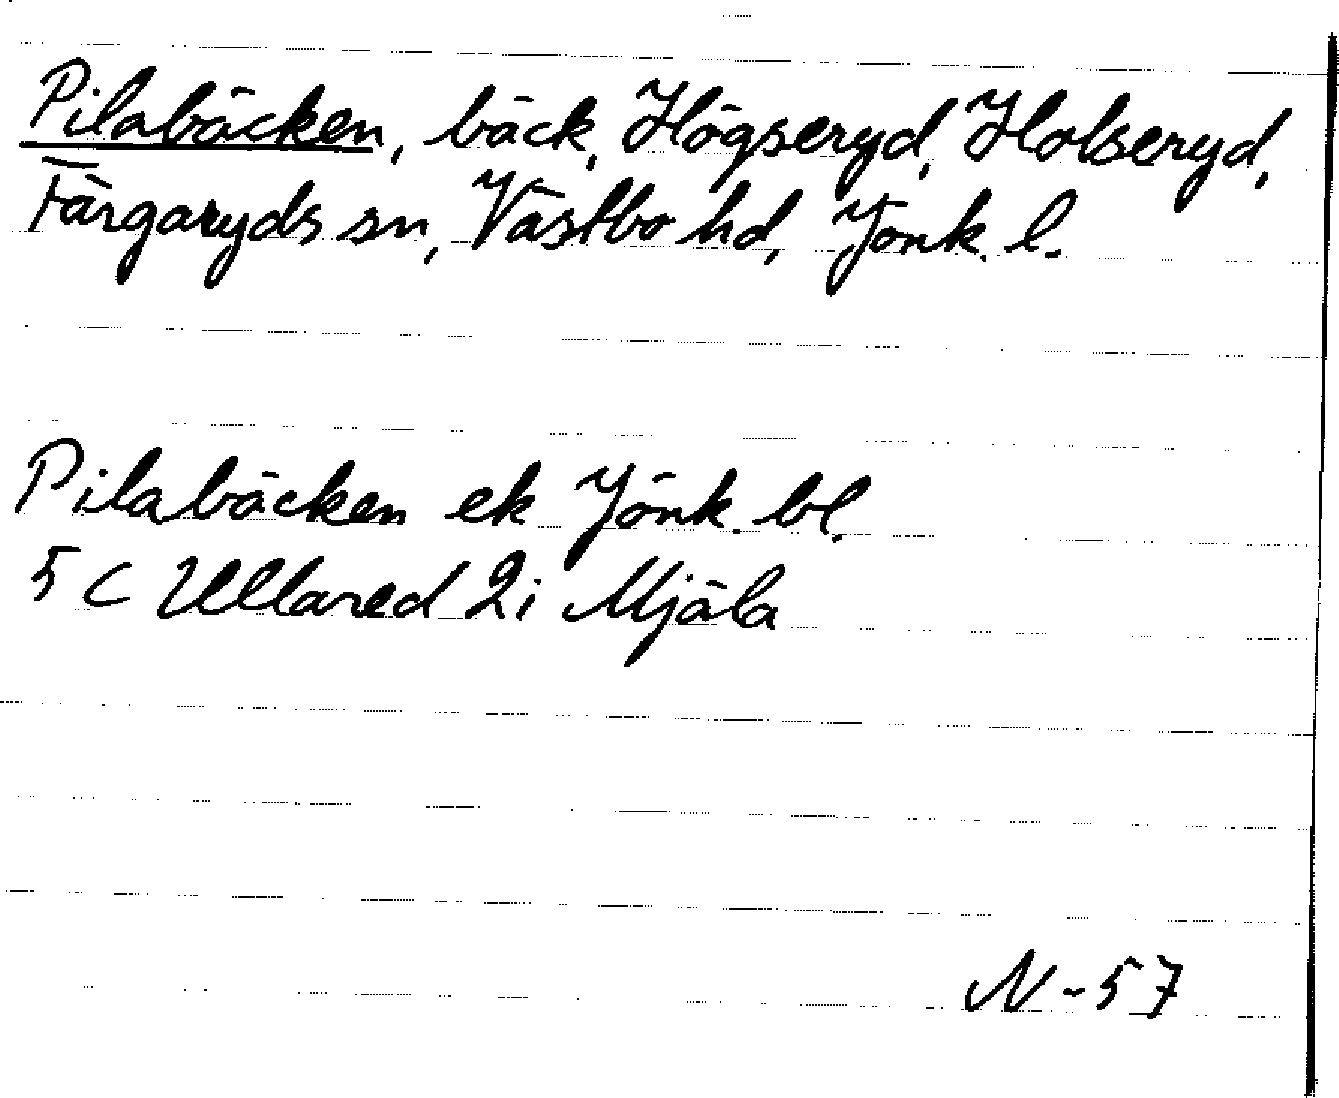 Pilabäcken, bäck, Högseryd, Holseryd,
Färgaryds sn, Västbo hd, Jönk. l.
Pilabäcken ek Jönk. bl.
5 C Ullared 2i Mjäla
N-57